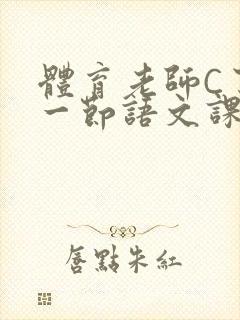 體育老師C
一節語文課
唇點朱紅